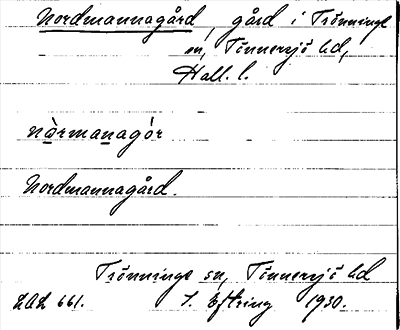 Nordmannagård, gård i Trönninge
sn, Tönnersjö hd,
Hall. l.
nòrmanagór
Nordmannagård.
Trönninge sn, Tönnersjö hd
LAL 661. 1930.